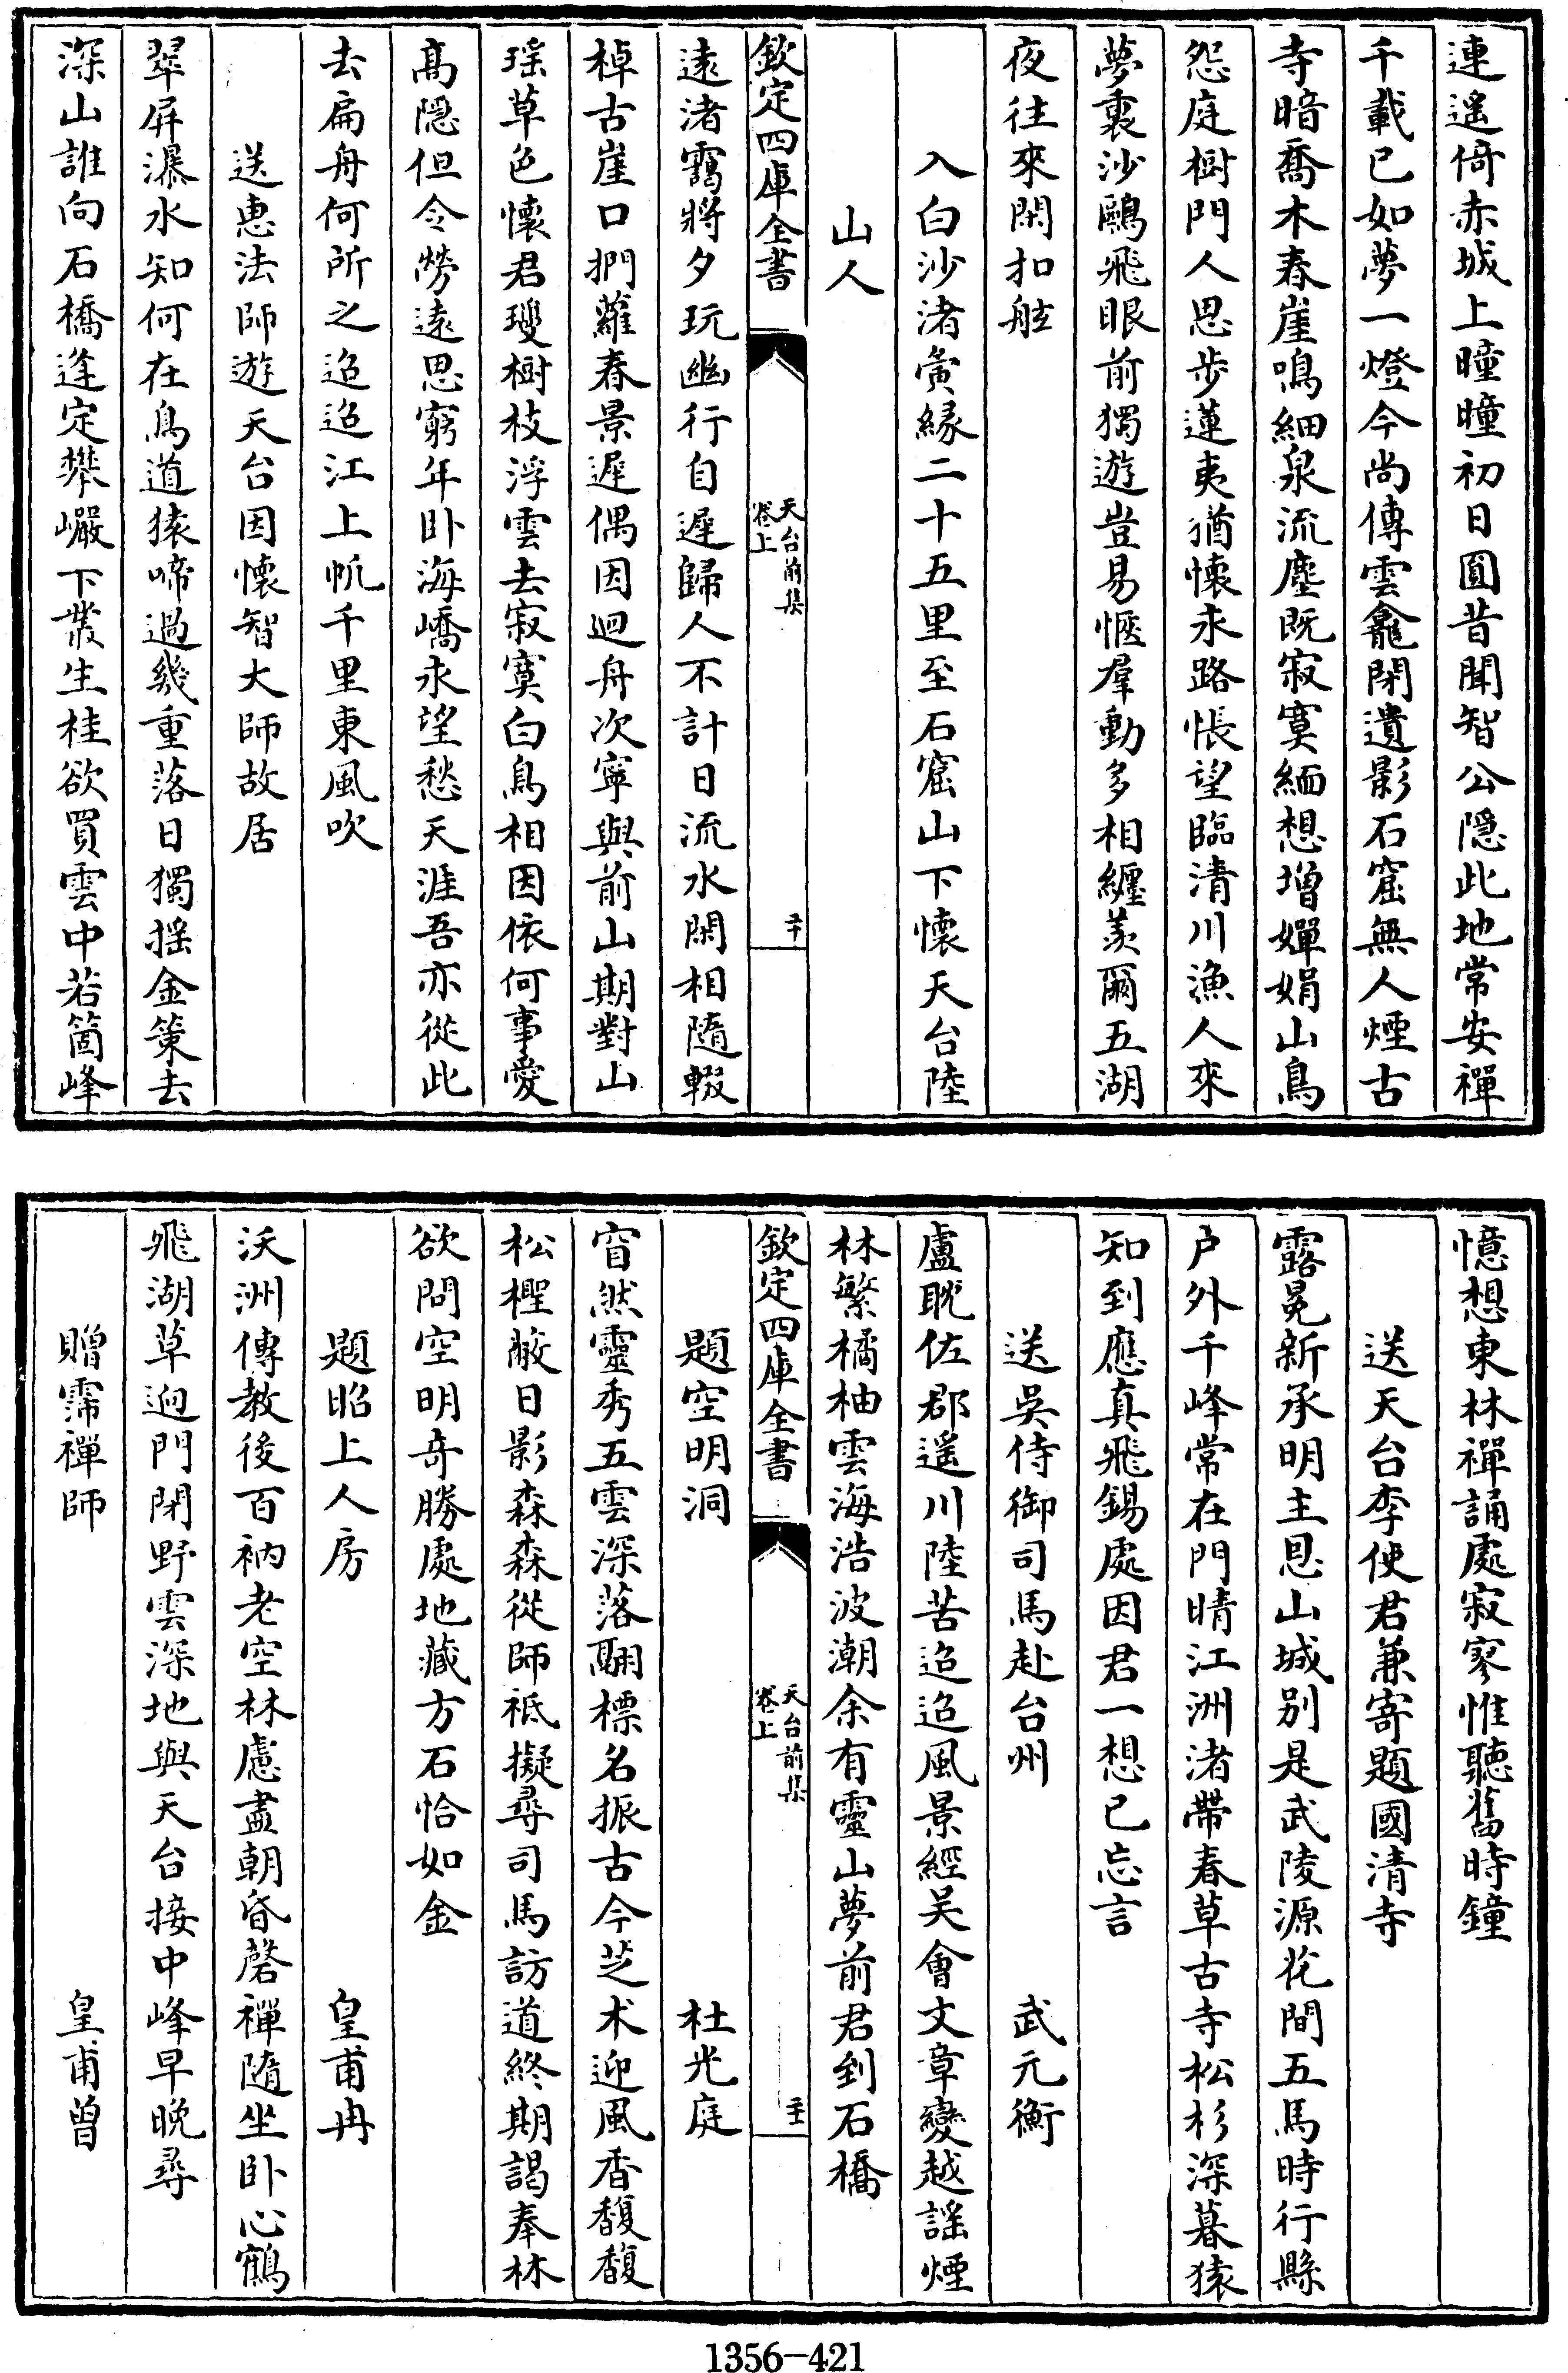 連遥倚赤城上曈曈初日圓昔聞智公隱此地常安禪
千載已如夢一燈今尚傳雲龕閉遺影石窟無人煙古
寺暗喬木春崖鳴細泉流塵既寂寞緬想增嬋娟山鳥
怨庭樹門人思步蓮夷猶懷永路悵望臨清川漁人來
夢裏沙鷗飛眼前獨遊豈易愜羣動多相纒羨爾五湖
夜往來閑扣舷
入白沙渚夤縁二十五里至石窟山下懷天台陸
山人
欽定四庫全書
天台前集
卷上
二十
遠渚靄將夕玩幽行自遲歸人不計日流水閑相隨輟
棹古崖口捫蘿春景遲偶因迴舟次寧與前山期對山
瑶草色懷君瓊樹枝浮雲去寂寞白鳥相因依何事愛
髙隱但令勞遠思窮年卧海嶠永望愁天涯吾亦從此
去扁舟何所之迢迢江上帆千里東風吹
送惠法師遊天台因懷智大師故居
翠屏瀑水知何在鳥道猿啼過幾重落日獨揺金策去
深山誰向石橋逢定攀巖下叢生桂欲買雲中若箇峰
憶想東林禪誦處寂寥惟聽舊時鐘
送天台李使君兼寄題國清寺
露冕新承明主恩山城别是武陵源花間五馬時行縣
戸外千峰常在門晴江洲渚帶春草古寺松杉深暮猿
知到應真飛錫處因君一想已忘言
送吳侍御司馬赴台州 武元衡
盧耽佐郡遥川陸苦迢迢風景經吴會文章變越謡煙
林繁橘柚雲海浩波潮余有靈山夢前君到石橋
欽定四庫全書
天台前集
卷上
二十一
題空明洞 杜光庭
窅然靈秀五雲深落翮標名振古今芝术迎風香馥馥
松檉蔽日影森森從師祗擬尋司馬訪道終期謁奉林
欲問空明奇勝處地藏方石恰如金
題昭上人房 皇甫冉
沃洲傳教後百衲老空林慮盡朝昏磬禪隨坐卧心鶴
飛湖草迥門閉野雲深地與天台接中峰早晚尋
贈霈禪師 皇甫曾
1356-421